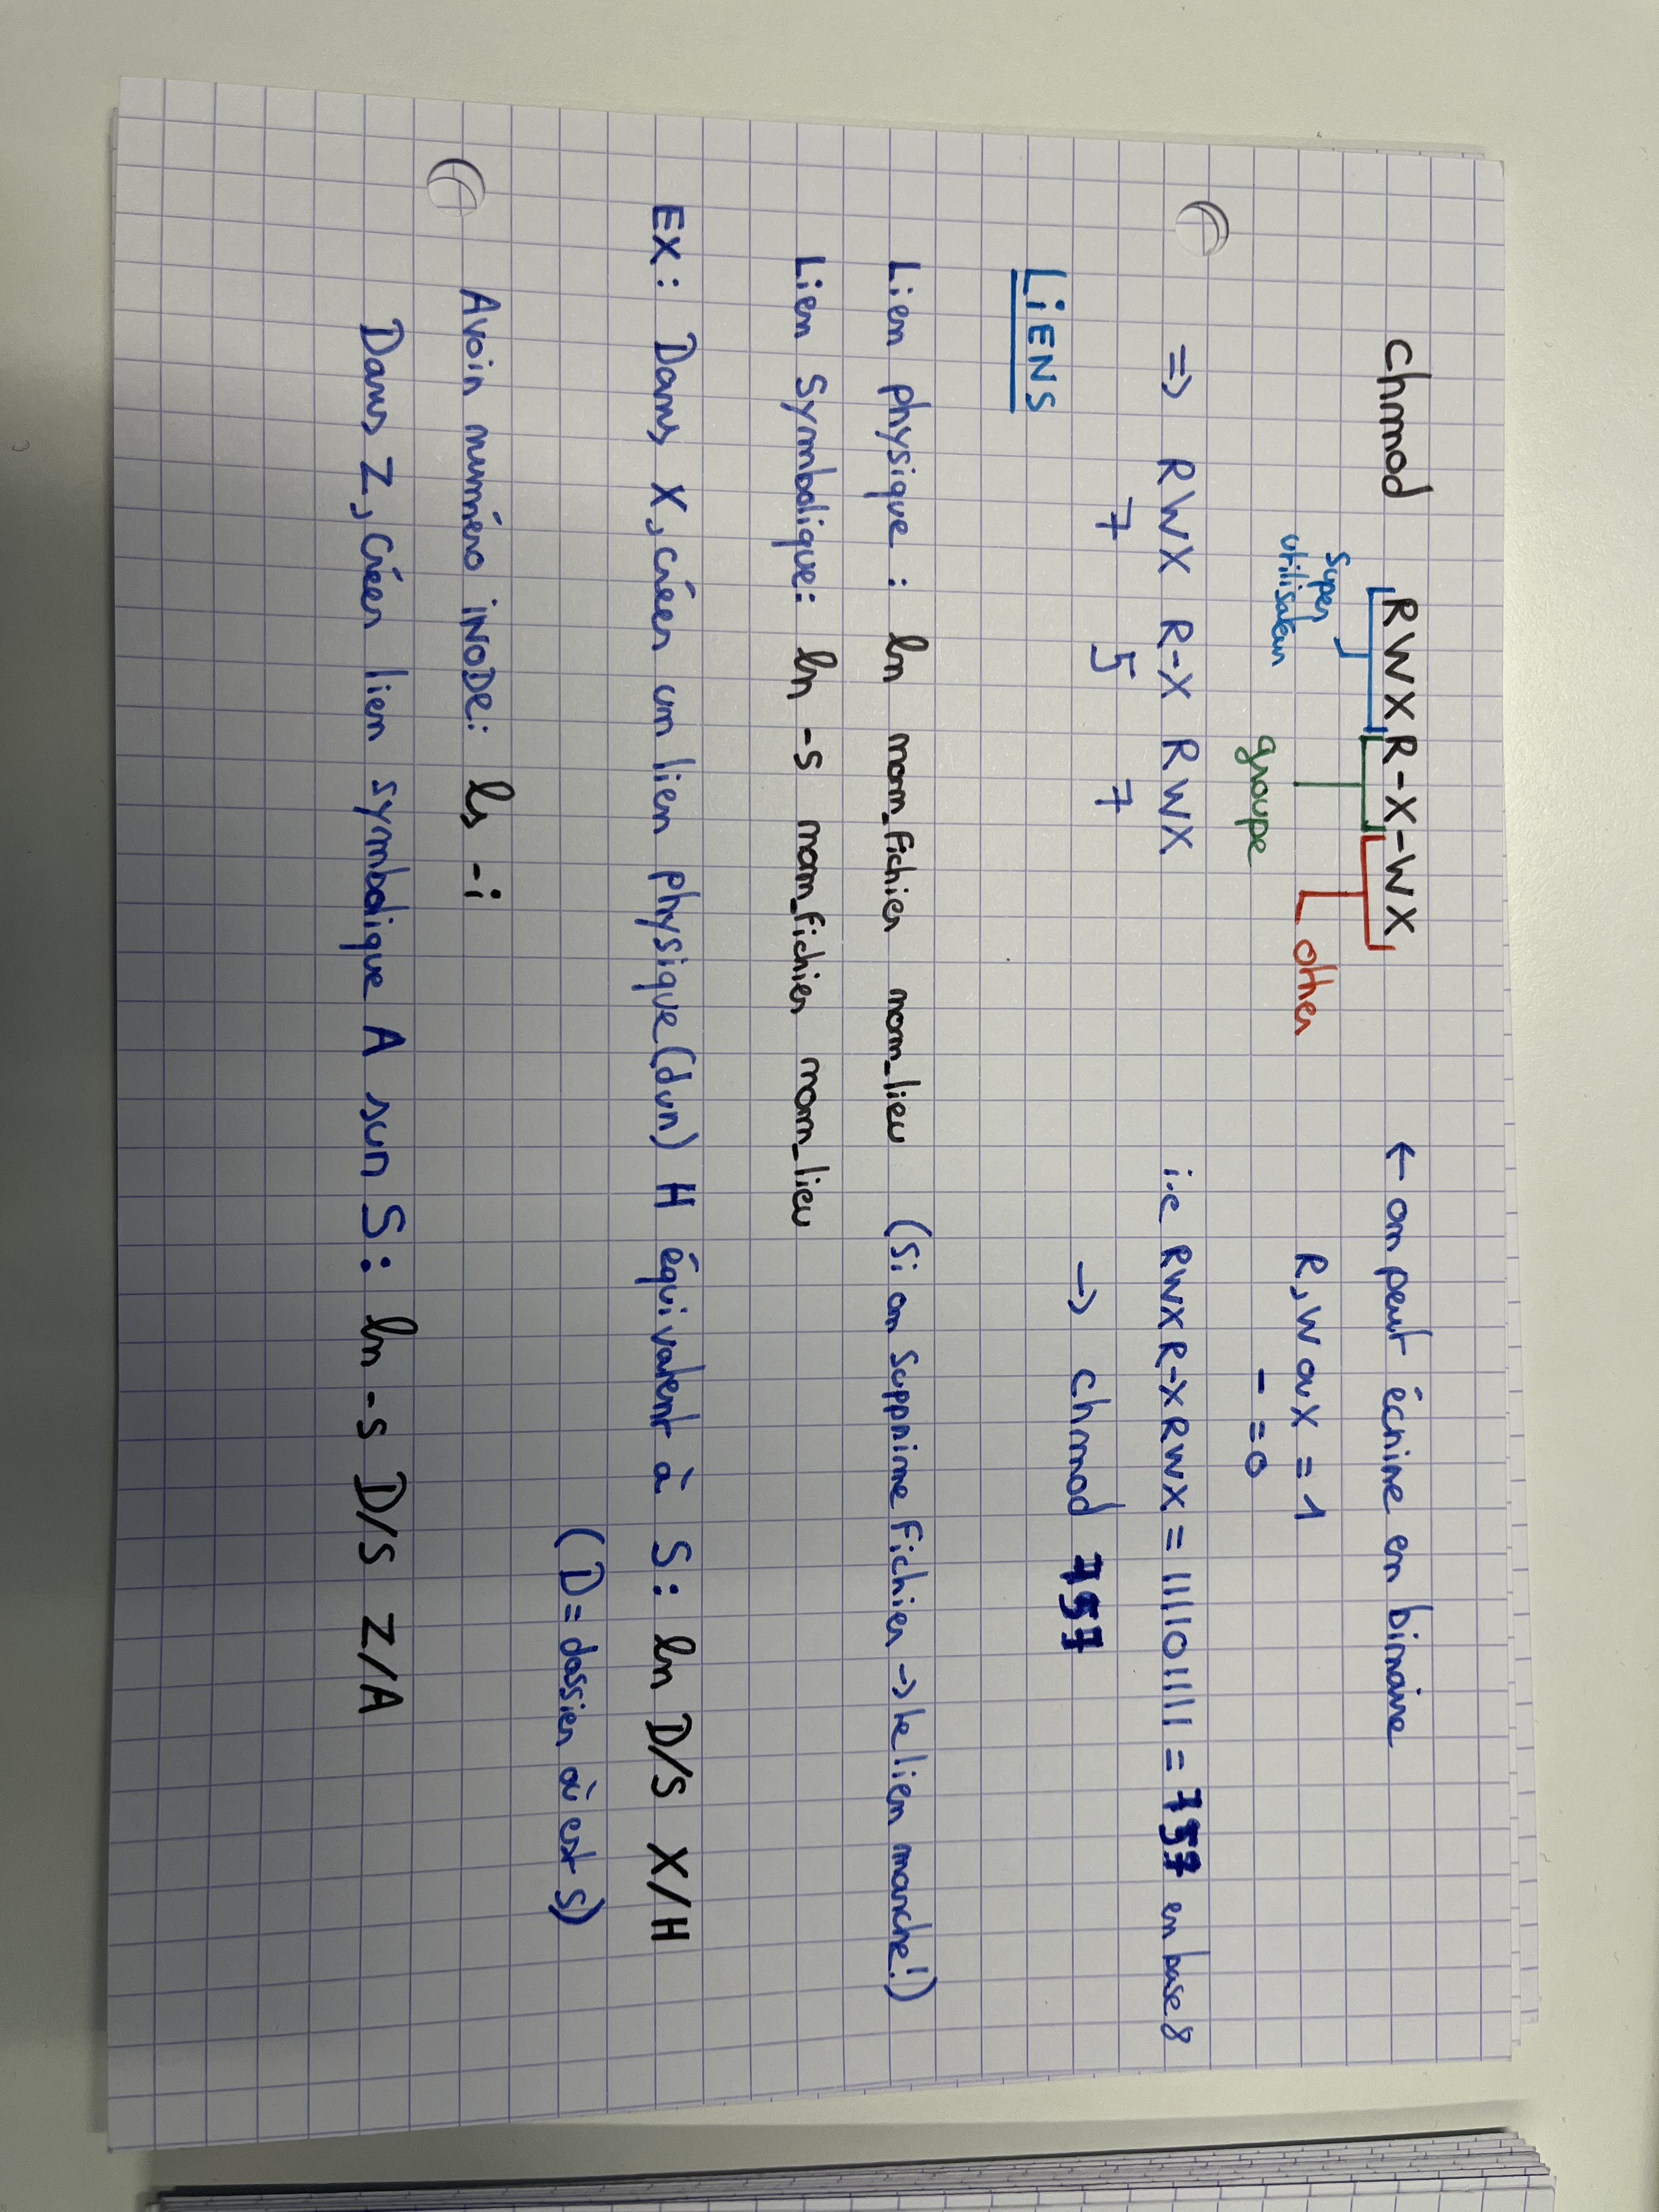 chmod RWXR-X-WX ← on peut écrire en binaire
Super utilisateur groupe other R, W ou X = 1
- = 0
=> RWX R-X RWX i.e RWXR-XRWX = 111101111 = 757 en base 8
7 5 7 → chmod 757
LIENS
Lien physique : ln nom_fichier nom_lieu (Si on supprime Fichier → le lien marche!)
Lien Symbolique: ln -s nom_fichier nom_lieu
EX: Dans X, créer un lien physique (dur) H équivalent à S: ln D/S X/H
(D= dossier où est S)
Avoir numéro iNODE: ls -i
Dans Z, créer lien symbolique A sur S: ln -s D/S Z/A